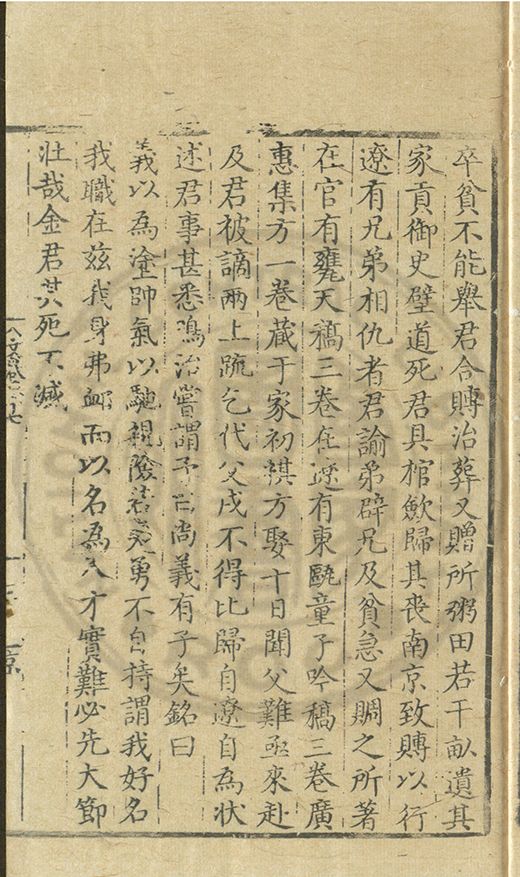 卒貧不能舉君合賻治葬又贈所粥田若干畝遺其
家貢御史璧道死君具棺歛歸其喪南京致賻以行
遼有兄弟相仇者君諭弟辟兄及貧急又賙之所著
在官有甕天稿三卷在遼有東甌童子吟稿三卷廣
惠集方一卷蔵于家初祺方娶十日聞父難亟來赴
及君被謫兩上䟽乞代父戍不得比歸自遼自為狀
述君事甚悉鳴治嘗謂予言尚義有子矣銘曰
義以為塗帥氣以馳視險若夷勇不自持謂我好名
我職在茲我身弗䘏而以名為人才實難必先大節
壯哉金君其死不滅